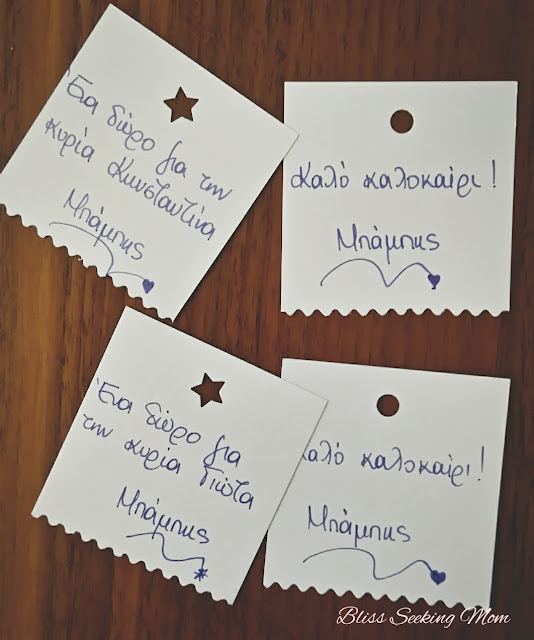 Ένα δώρο για την
κυρία Κωνσταντίνα
Μπάμπης
Καλό καλοκαίρι!
Μπάμπης
Ένα δώρο για
την κυρία Γιώτα
Μπάμπης
καλό καλοκαίρι!
Μπάμπης
Bliss Seeking Mom